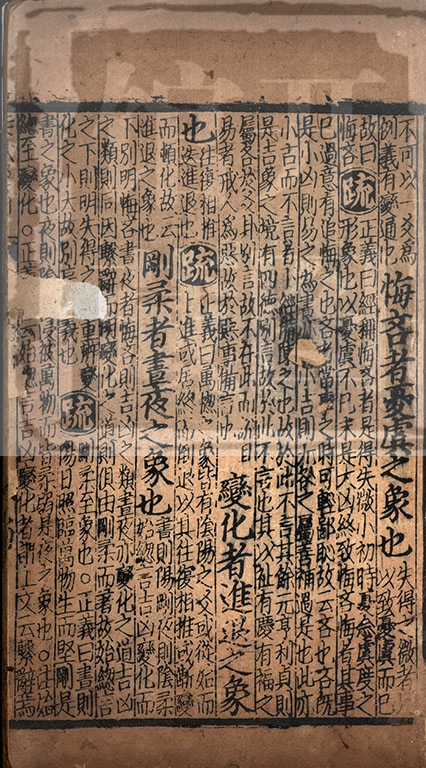 不可以爻為
例義有變通也
悔吝者憂虞之象也
失得之微者
足以致憂虞而已
故曰
悔吝
疏
正義曰經稱悔吝者是得失微小初時憂念虞度之
形象也以憂虞不已未是大凶終致悔吝悔者其事
已過意有追悔之也吝者當事之時可輕鄙恥故云吝也吝既
是小凶則易之為書亦有小吉則无咎之屬善補過是也此亦
小吉而不言者下經備陳之也故於此不言其餘元亨利貞則
是吉象之境有四德別言故於此不言也其以祉有慶有福之
屬各於爻卦別言故不在此而說且
易者戒人為惡故於惡事備言也
變化者進退之象
也
往復相推
迭進退也
疏
正義曰萬物之象皆有陰陽之爻或從始而
上進或居終而倒退以其往復相推或漸變
而頓化故云
進退之象也
剛柔者晝夜之象也
晝則陽剛夜則陰柔
始總言吉凶變化而
下別明悔吝晝夜者悔吝則吉凶之類晝夜亦變化之道吉凶
之類則同因繫辭而明變化之道則俱由剛柔而著故始總言
之下則明失得之輕重辨變
化之小大故別序其義也
疏
剛柔至象也○正義曰晝則
陽日照臨萬物生而堅剛是
晝之象也夜則陰潤浸被萬物而皆柔弱是夜之象也○注始
總至變化○正義曰云始總言吉凶變化者即上文云繫辭焉